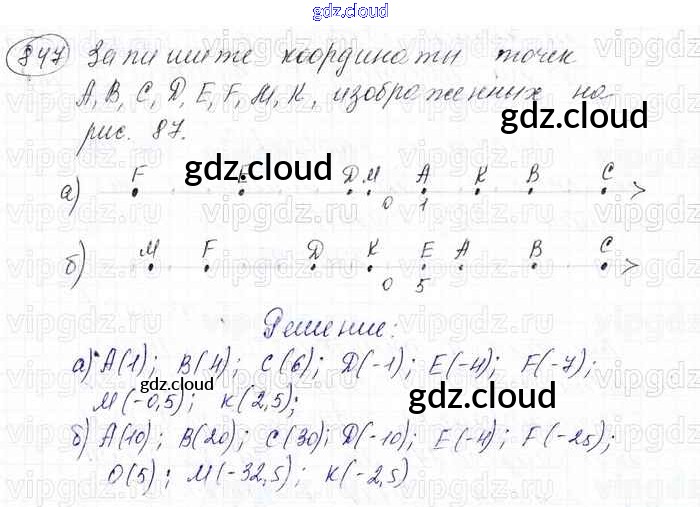 gdz.cloud
847 Запишите координаты точек
A, B, C, D, E, F, M, K, изображенных на
рис. 87.
gdz.cloud
gdz.cloud
F E D M A K B C
а)
0 1
M F D K E A B C
б)
0 5
Решение:
а) A(1); B(4); C(6); D(-1); E(-4); F(-7);
gdz.cloud
M(-0,5); K(2,5);
gdz.cloud
б) A(10); B(20); C(30); D(-10); E(-4); F(-25);
O(5); M(-32,5); K(-2,5)
gdz.cloud